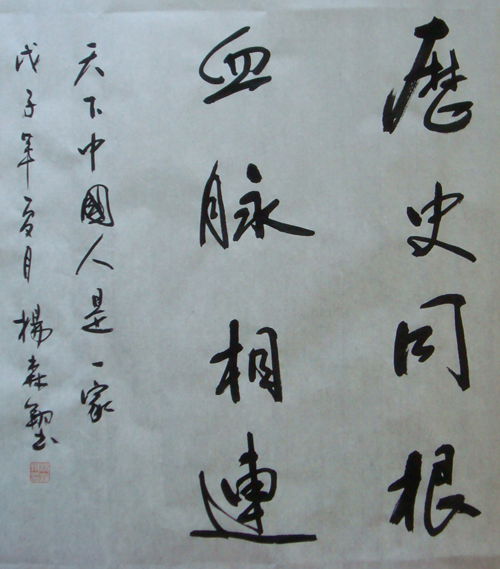 歷史同根
血脉相連
天下中國人是一家
戊子年夏月楊森翔书